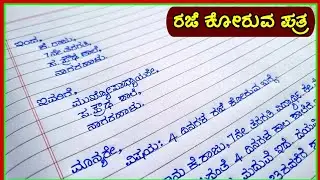 ರಜೆ ಕೋರುವ ಪತ್ರ
ಇಂದ,
ಕೆ. ರಾಜು,
7ನೇ ತರಗತಿ
ಸ. ಪ್ರೌಢ ಶಾಲೆ,
ನಾಗರಹಾಳು.
ಇವರಿಗೆ,
ಮುಖ್ಯೋಪಾಧ್ಯಾಯರು,
ಸ. ಪ್ರೌಢ ಶಾಲೆ,
ನಾಗರಹಾಳು.
ಮಾನ್ಯರೇ,
ವಿಷಯ: 4 ದಿನಗಳ ರಜೆ ಕೋರುವ ಬಗ್ಗೆ
ಕೆ. ರಾಜು, 7ನೇ ತರಗತಿ
4 ದಿನಗಳ ಕಾಲ
ಮದುವೆ ಇದೆ